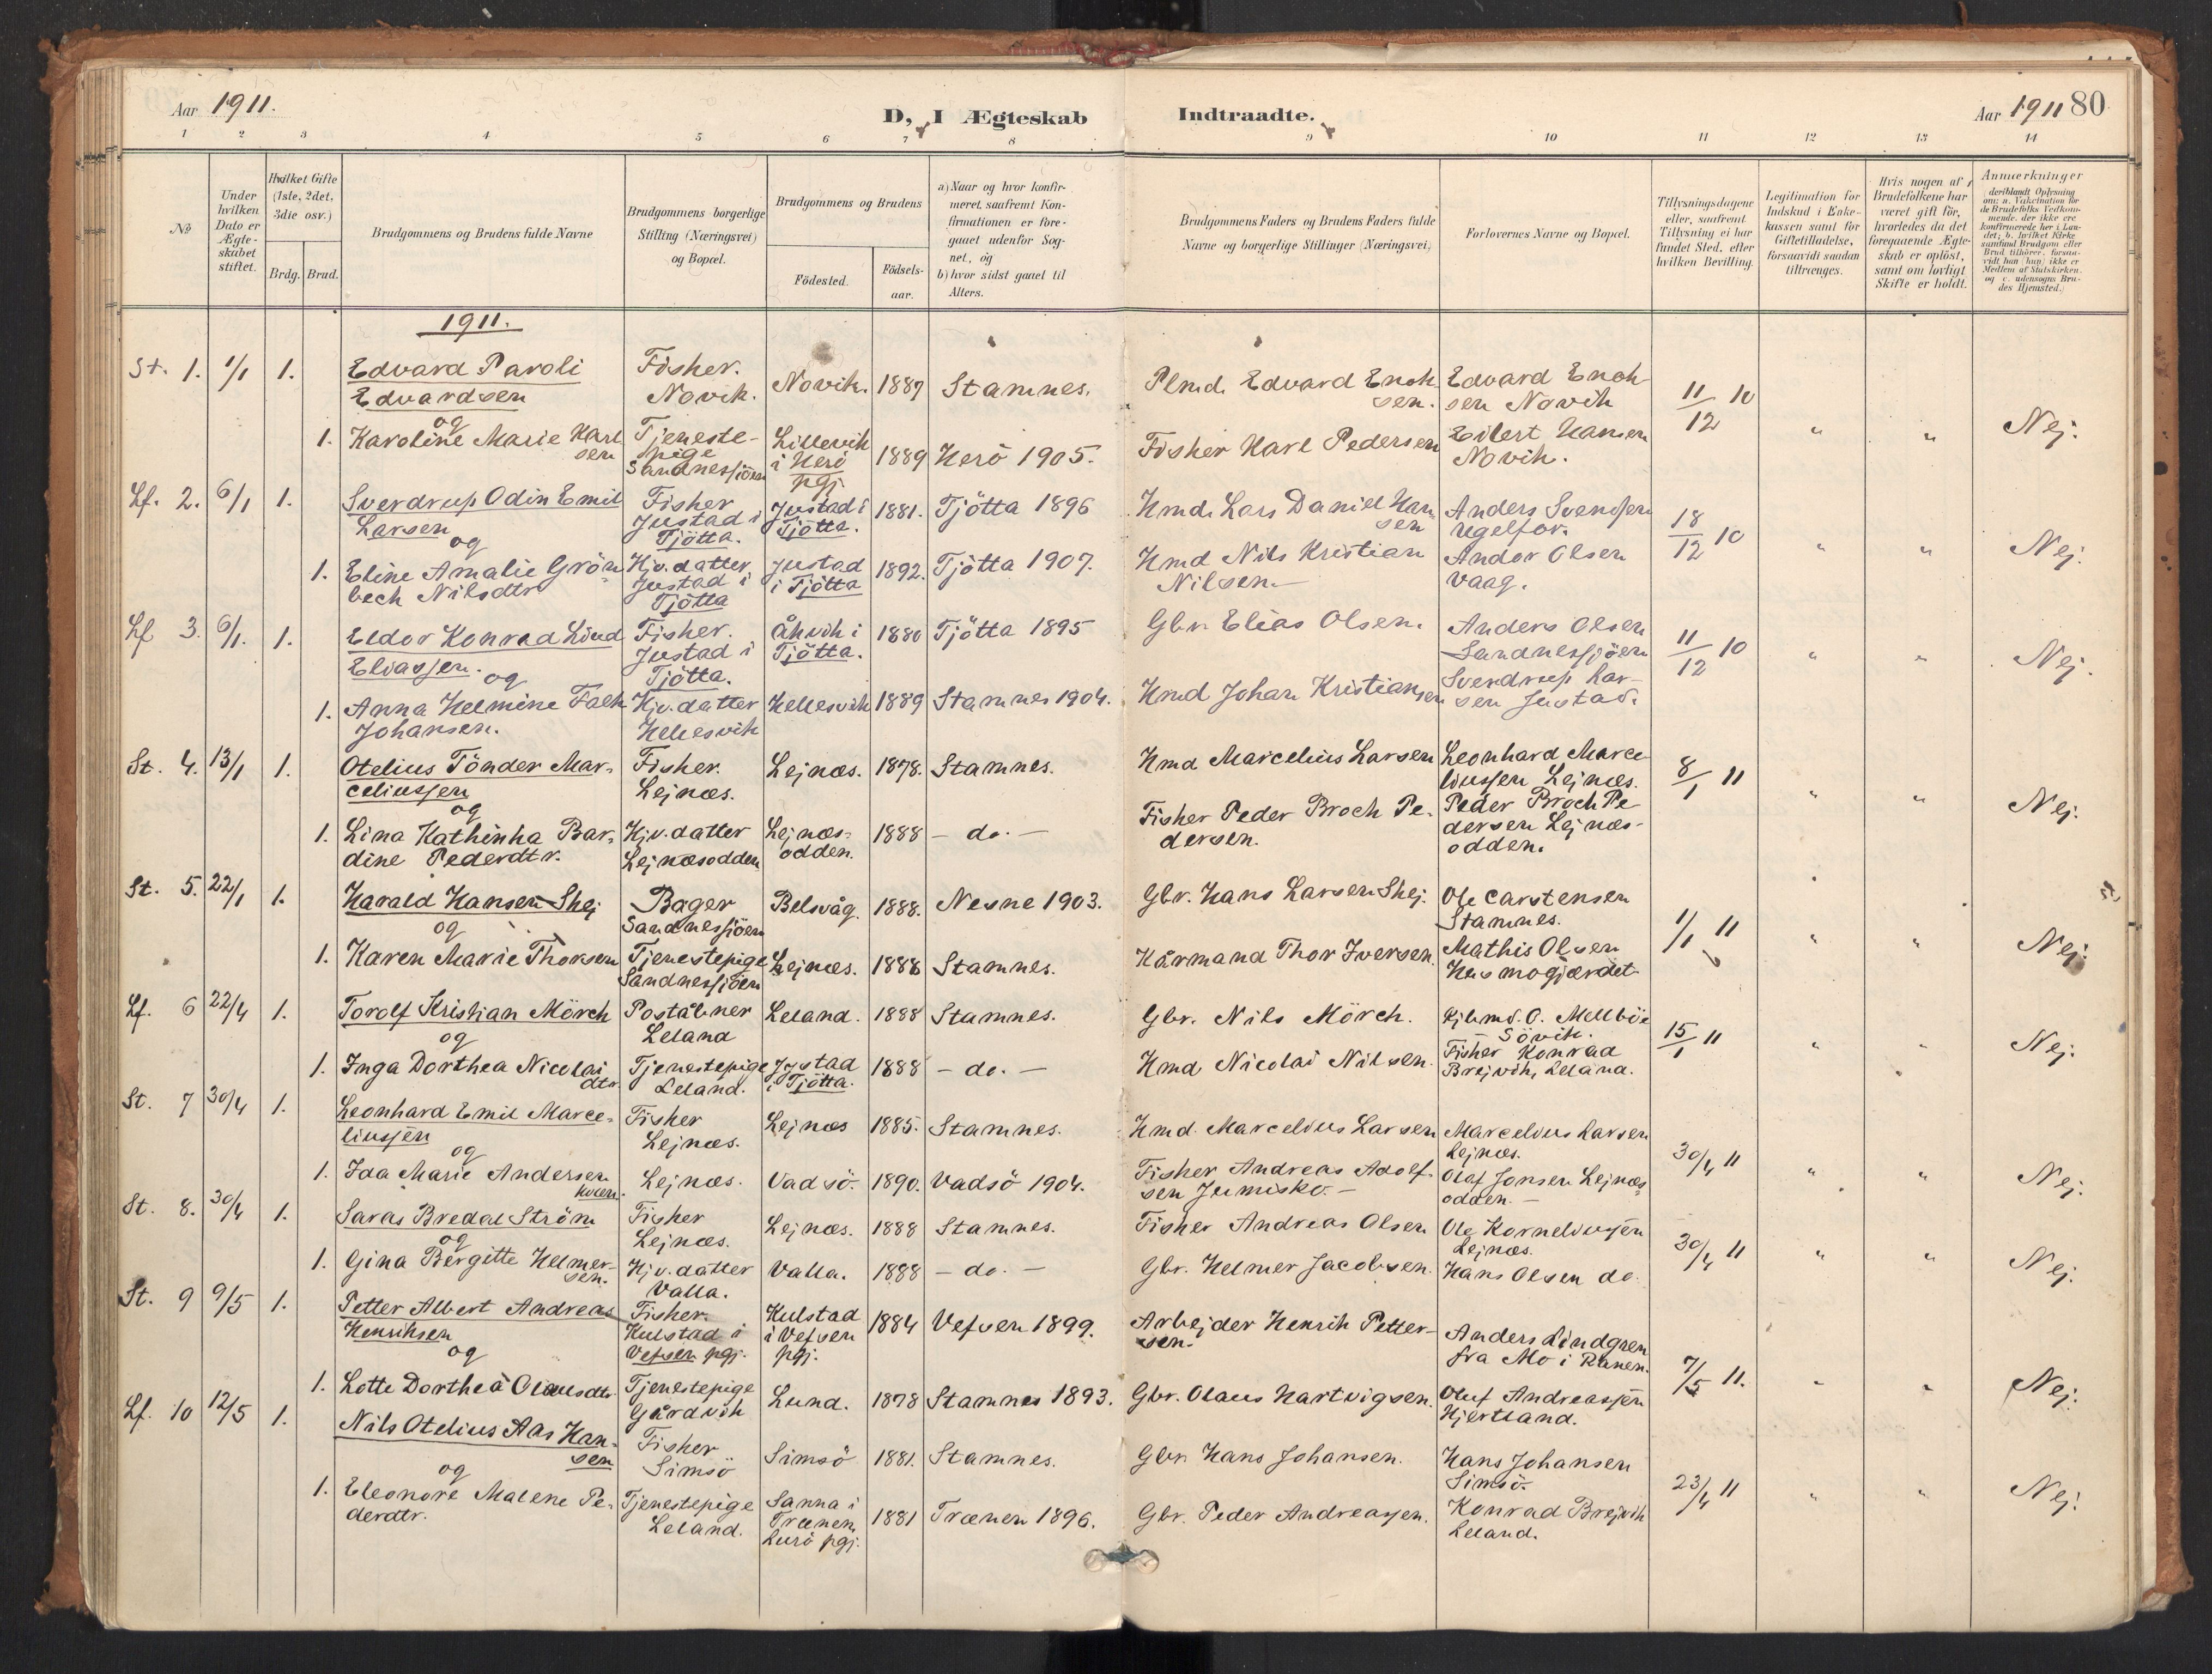 Aar 1911.
D, I Ægteskab Indtraadte.
Aar 1911 80
1 2 3 4 5 6 7 8 9 10 11 12 13 14
No
Under hvilken Dato er Ægteskabet stiftet.
Hvilket Gifte (1ste, 2det, 3die osv.)
Brdg. Brud.
Brudgommens og Brudens fulde Navne
Brudgommens borgerlige Stilling (Næringsvei) og Bopæl.
Brudgommens og Brudens
Fødested.
Fødselsaar.
a) Naar og hvor konfirmeret, saafremt Konfirmationen er foregaaet udenfor Sognet, og
b) hvor sidst gaaet til Alters.
Brudgommens Faders og Brudens Faders fulde Navne og borgerlige Stillinger (Næringsvei)
Forlovernes Navne og Bopæl.
Tillysningsdagene eller, saafremt Tillysning ei har fundet Sted, efter hvilken Bevilling.
Legitimation for Indskud i Enkekassen samt for Giftetilladelse, forsaavidt saadan tiltrænges.
Hvis nogen af Brudefolkene har været gift før, hvorledes da det foregaaende Ægteskab er opløst, samt om lovligt Skifte er holdt.
Anmerkninger
(deriblandt Oplysning om: a. Vakcination for de Brudefolks Vedkommende, der ikke ere konfirmerede her i Landet; b. hvilket Kirkesamfund Brudgom eller Brud tilhører, forsaavidt han (hun) ikke er Medlem af Statskirken. og c. udensogns Brudes Hjemsted.)
1911.
St. 1. 1/1 1. Edvard Paroli Edvardsen Fisker. Novik. Novik. 1887 Stamnes. Plmd. Edvard Enoksen. Edvard Enoksen Novik 11/12 10
og
1. Karoline Marie Karlsen Tjenestepige Sandnessjöen Lillevik i Herö pgj. 1889 Herö 1905. Fisker Karl Pedersen Eilert Hansen Novik. " " Nej.
Lf. 2. 6/1 1. Sverdrup Odin Emil Larsen Fisker Justad i Tjötta. Justad i Tjötta. 1881. Tjötta 1896 Hmd. Lars Daniel Hansen Anders Svendsen Ugelfor. 18/12 10
og
1. Eline Amalie Grönbech Nilsdtr Hjv. datter Justad i Tjötta Justad i Tjötta 1892. Tjötta 1907. Hmd Nils Kristian Nilsen. Andor Olsen Vaag. " " Nej.
Lf 3. 6/1. 1. Eldor Konrad Lind Eliassen. Fisker. Justad i Tjötta. Åkvik i Tjötta. 1880 Tjötta 1895 Gbr. Elias Olsen. Anders Olsen Sandnessjöen 11/12 10
og
1. Anna Helmine Falk Johansen. Hjv. datter Hellesvik Hellesvik 1889 Stamnes 1904. Hmd Johan Kristiansen Sverdrup Larsen Justad. " " Nej.
St. 4. 13/1 1. Otelius Tönder Marceliussen Fisker. Lejnæs. Lejnæs. 1878. Stamnes. Hmd Marcelius Larsen Leonhard Marceliussen Lejnæs. 8/1 11
og
1. Lina Kathinka Bardine Pederdtr. Hjv. datter Lejnæsodden Lejnæsodden. 1888 - do. - Fisker Peder Broch Pedersen. Peder Broch Pedersen Lejnæsodden. " " Nej.
St. 5. 22/1 1. Harald Hansen Skej Bager Sandnessjöen Belsvåg. 1888. Nesne 1903. Gbr. Hans Larsen Skej. Ole Carstensen Stamnes. 1/1 11
og
1. Karen Marie Thorsen Tjenestepige Sandnessjöen Lejnæs. 1888 Stamnes. Kårmand Thor Iversen. Mathis Olsen Husmogjærdet " " Nej.
Lf. 6 22/4 1. Torolf Kristian Mörch Poståbner Leland Leland. 1888 Stamnes. Gbr. Nils Mörch. Kjbmd. O. Mellböe Sövik. 15/1 11
og
1. Inga Dorthea Nicolaidtr Tjenestepige Leland. Justad i Tjötta. 1888 - do. - Hmd Nicolai Nilsen. Fisker Konrad Brejvik, Leland. " " Nej.
St. 7 30/4 1. Leonhard Emil Marceliussen Fisker Lejnæs. Lejnæs 1885. Stamnes. Hmd. Marcelius Larsen Marcelius Larsen Lejnæs. 30/4 11
og
1. Ida Marie Andersen kvæn. Lejnæs. Vadsö. 1890. Vadsö 1904. Fisker Andreas Adolfsen Jumisko. - Olaf Jonsen Lejnæsodden. - " " Nej.
St. 8. 30/4 1. Saras Bredal Ström Fisker Lejnæs. Lejnæs. 1888 Stamnes. Fisker Andreas Olsen Ole Korneliussen Lejnæs. 30/4 11
og
1. Gina Bergitte Helmersen. Hjv. datter Valla. Valla. 1888 - do. - Gbr. Helmer Jacobsen. Hans Olsen do. " " Nej.
St. 9 9/5 1. Petter Albert Andreas Henriksen Fisker. Kulstad i Vefsen pgj. Kulstad i Vefsen pgj. 1884 Vefsen 1899. Arbejder Henrik Pettersen. Anders Lindgren fra Mo i Ranen. 7/5 11.
og
1. Lotte Dorthea Olausdtr Tjenestepige Gårdvik Lund. 1878 Stamnes 1893. Gbr. Olaus Hartvigsen. Oluf Andreassen Hjertland. " " Nej.
Lf. 10 12/5 1. Nils Otelius Aas Hansen Fisker Simsö Simsö 1881. Stamnes. Gbr. Hans Johansen. Hans Johansen Simsö. 23/4 11
og
1. Eleonore Malene Pederdtr. Tjenestepige Leland. Sanna i Trænen, Lurö pgj. 1881 Trænen 1896. Gbr. Peder Andreassen. Konrad Brejvik Leland. " " Nej.